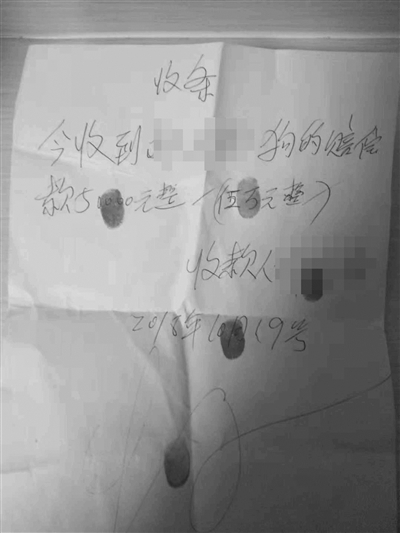 收条
今收到 狗的赔偿
款50000元整一(伍万元整)
收款人
2018年10月19号